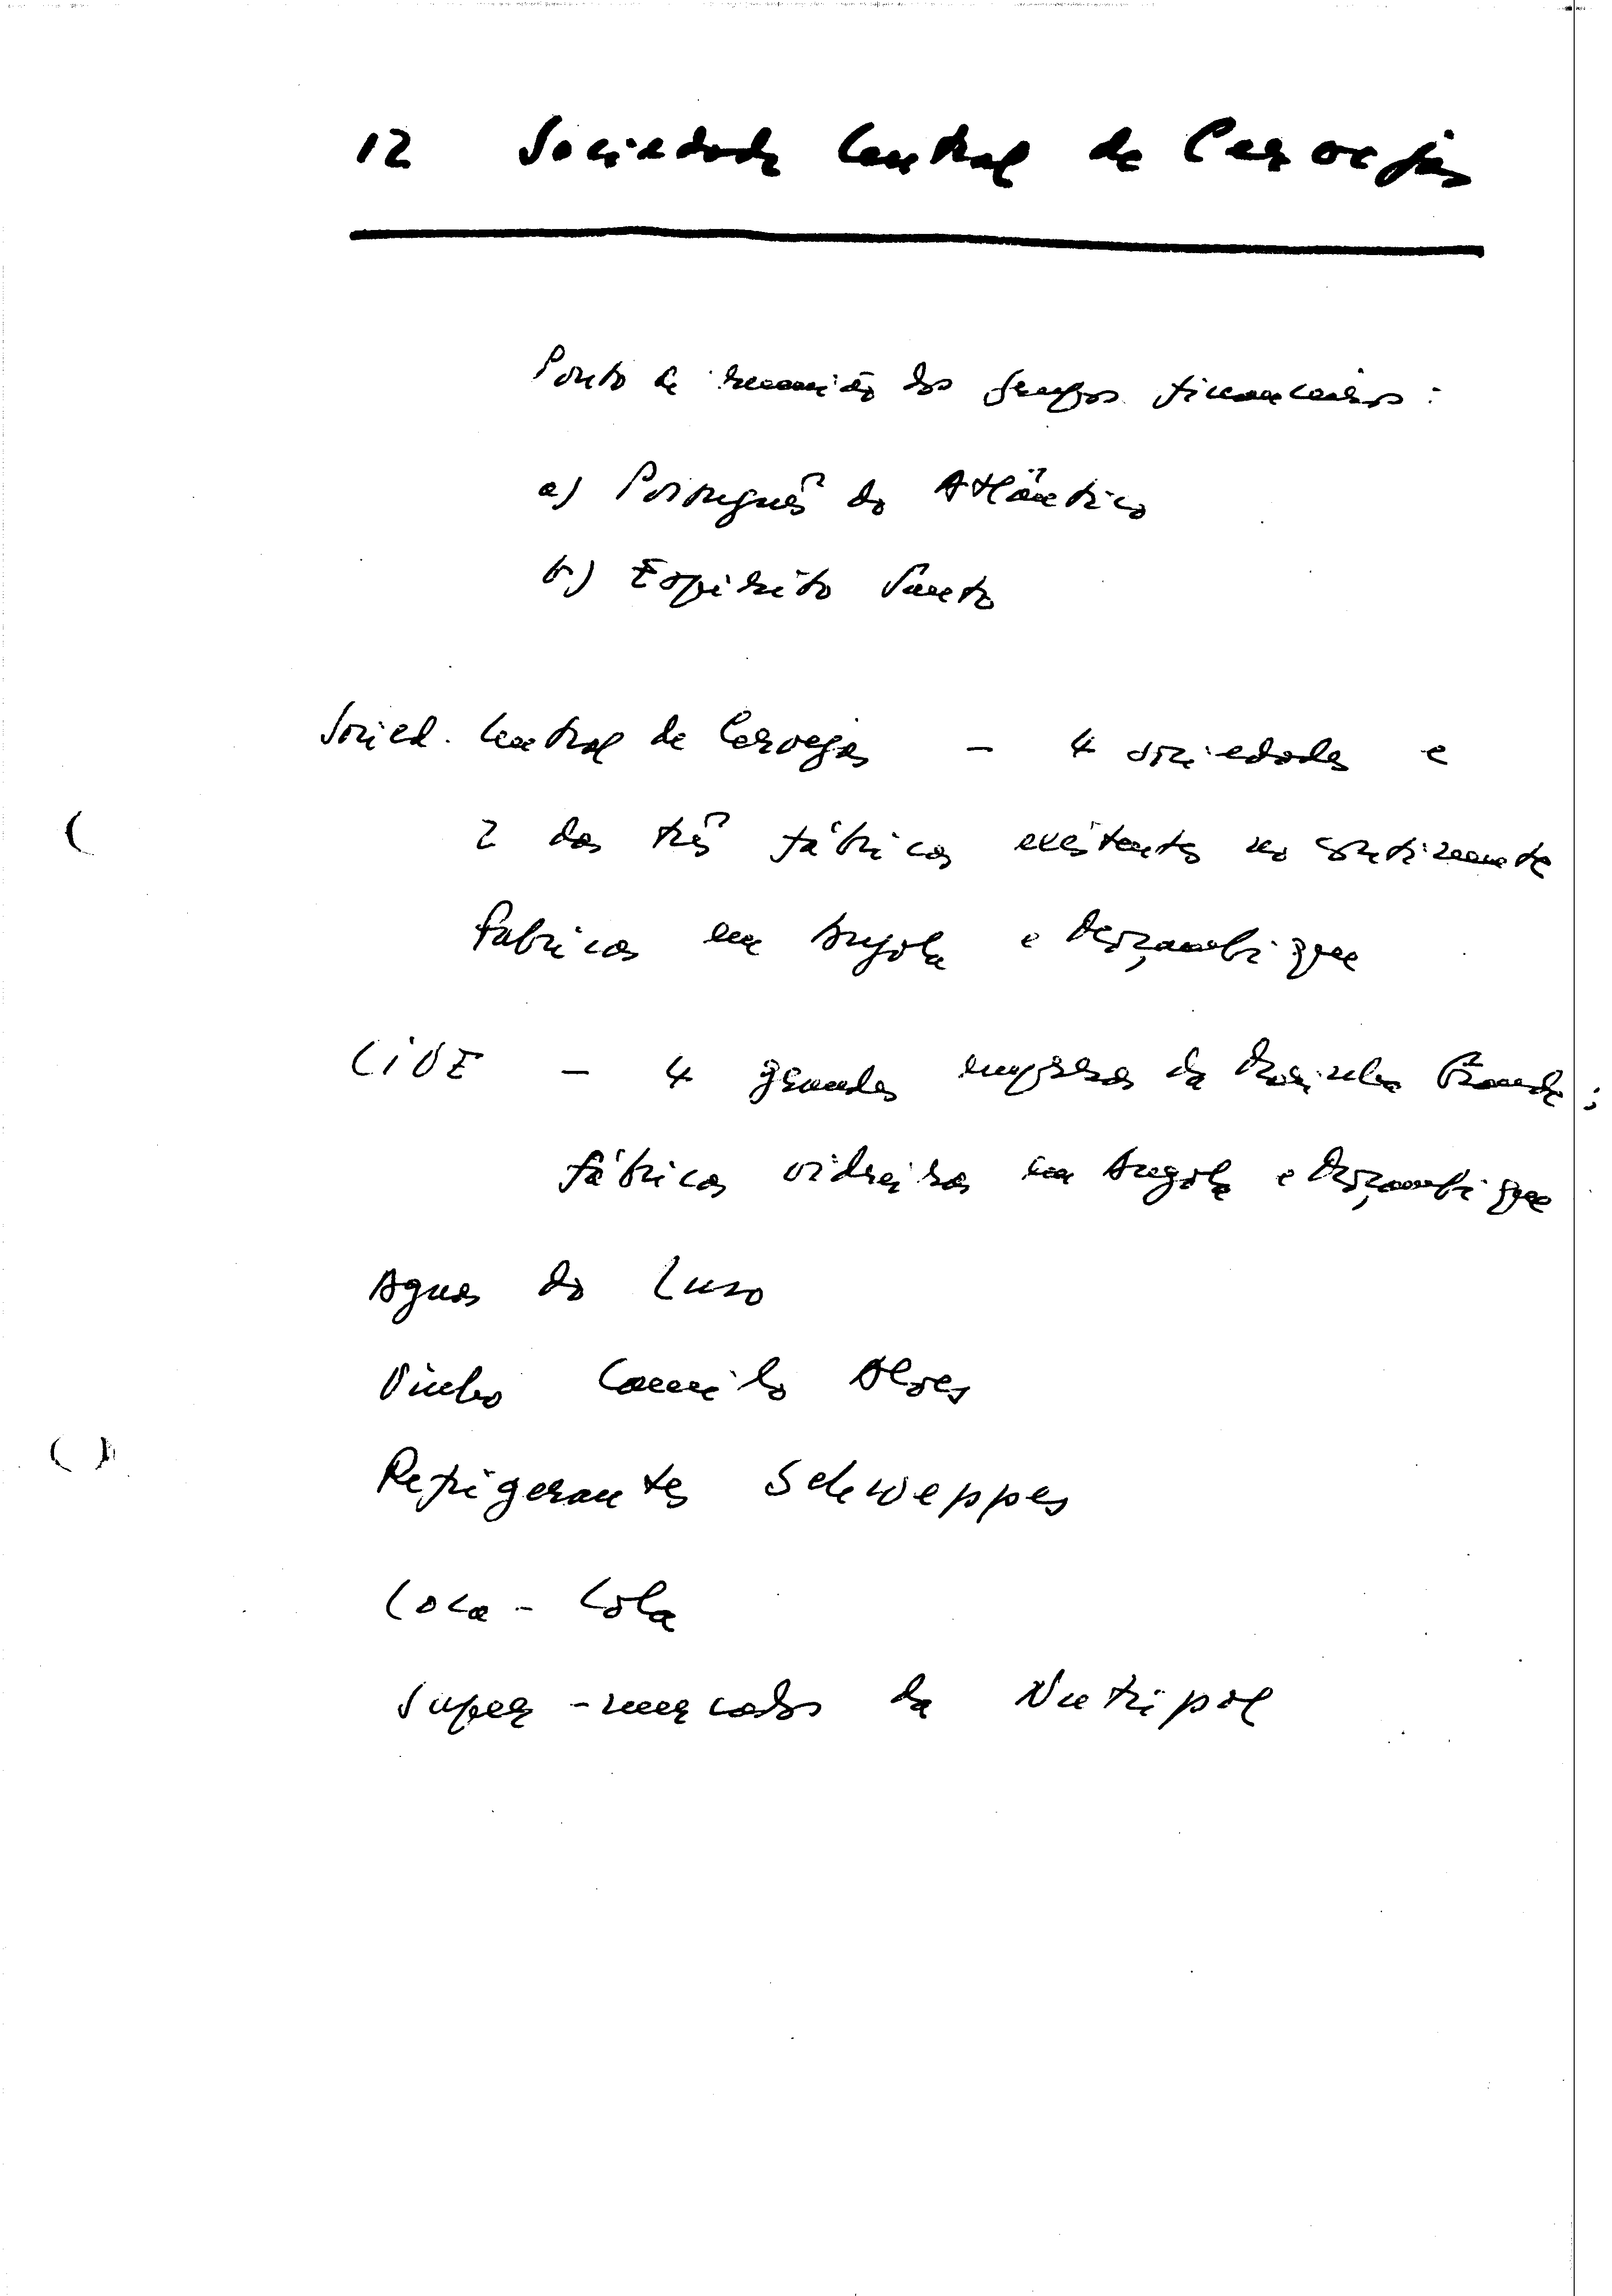 12 Sociedade Central de Cervejas
Ponto de reunião dos grupos financeiros:
a) Português do Atlântico
b) Espírito Santo
Socied. Central de Cervejas - 4 sociedades e
2 das três fábricas existentes no continente
Fabricas em Angola e Moçambique
CIVE - 4 grandes empresas da Marinha Grande;
fábricas vidreiras em Angola e Moçambique
Aguas do Luso
Vinho Camilo Alves
Refrigerantes Schweppes
Coca-Cola
Super-mercados da Nutripol